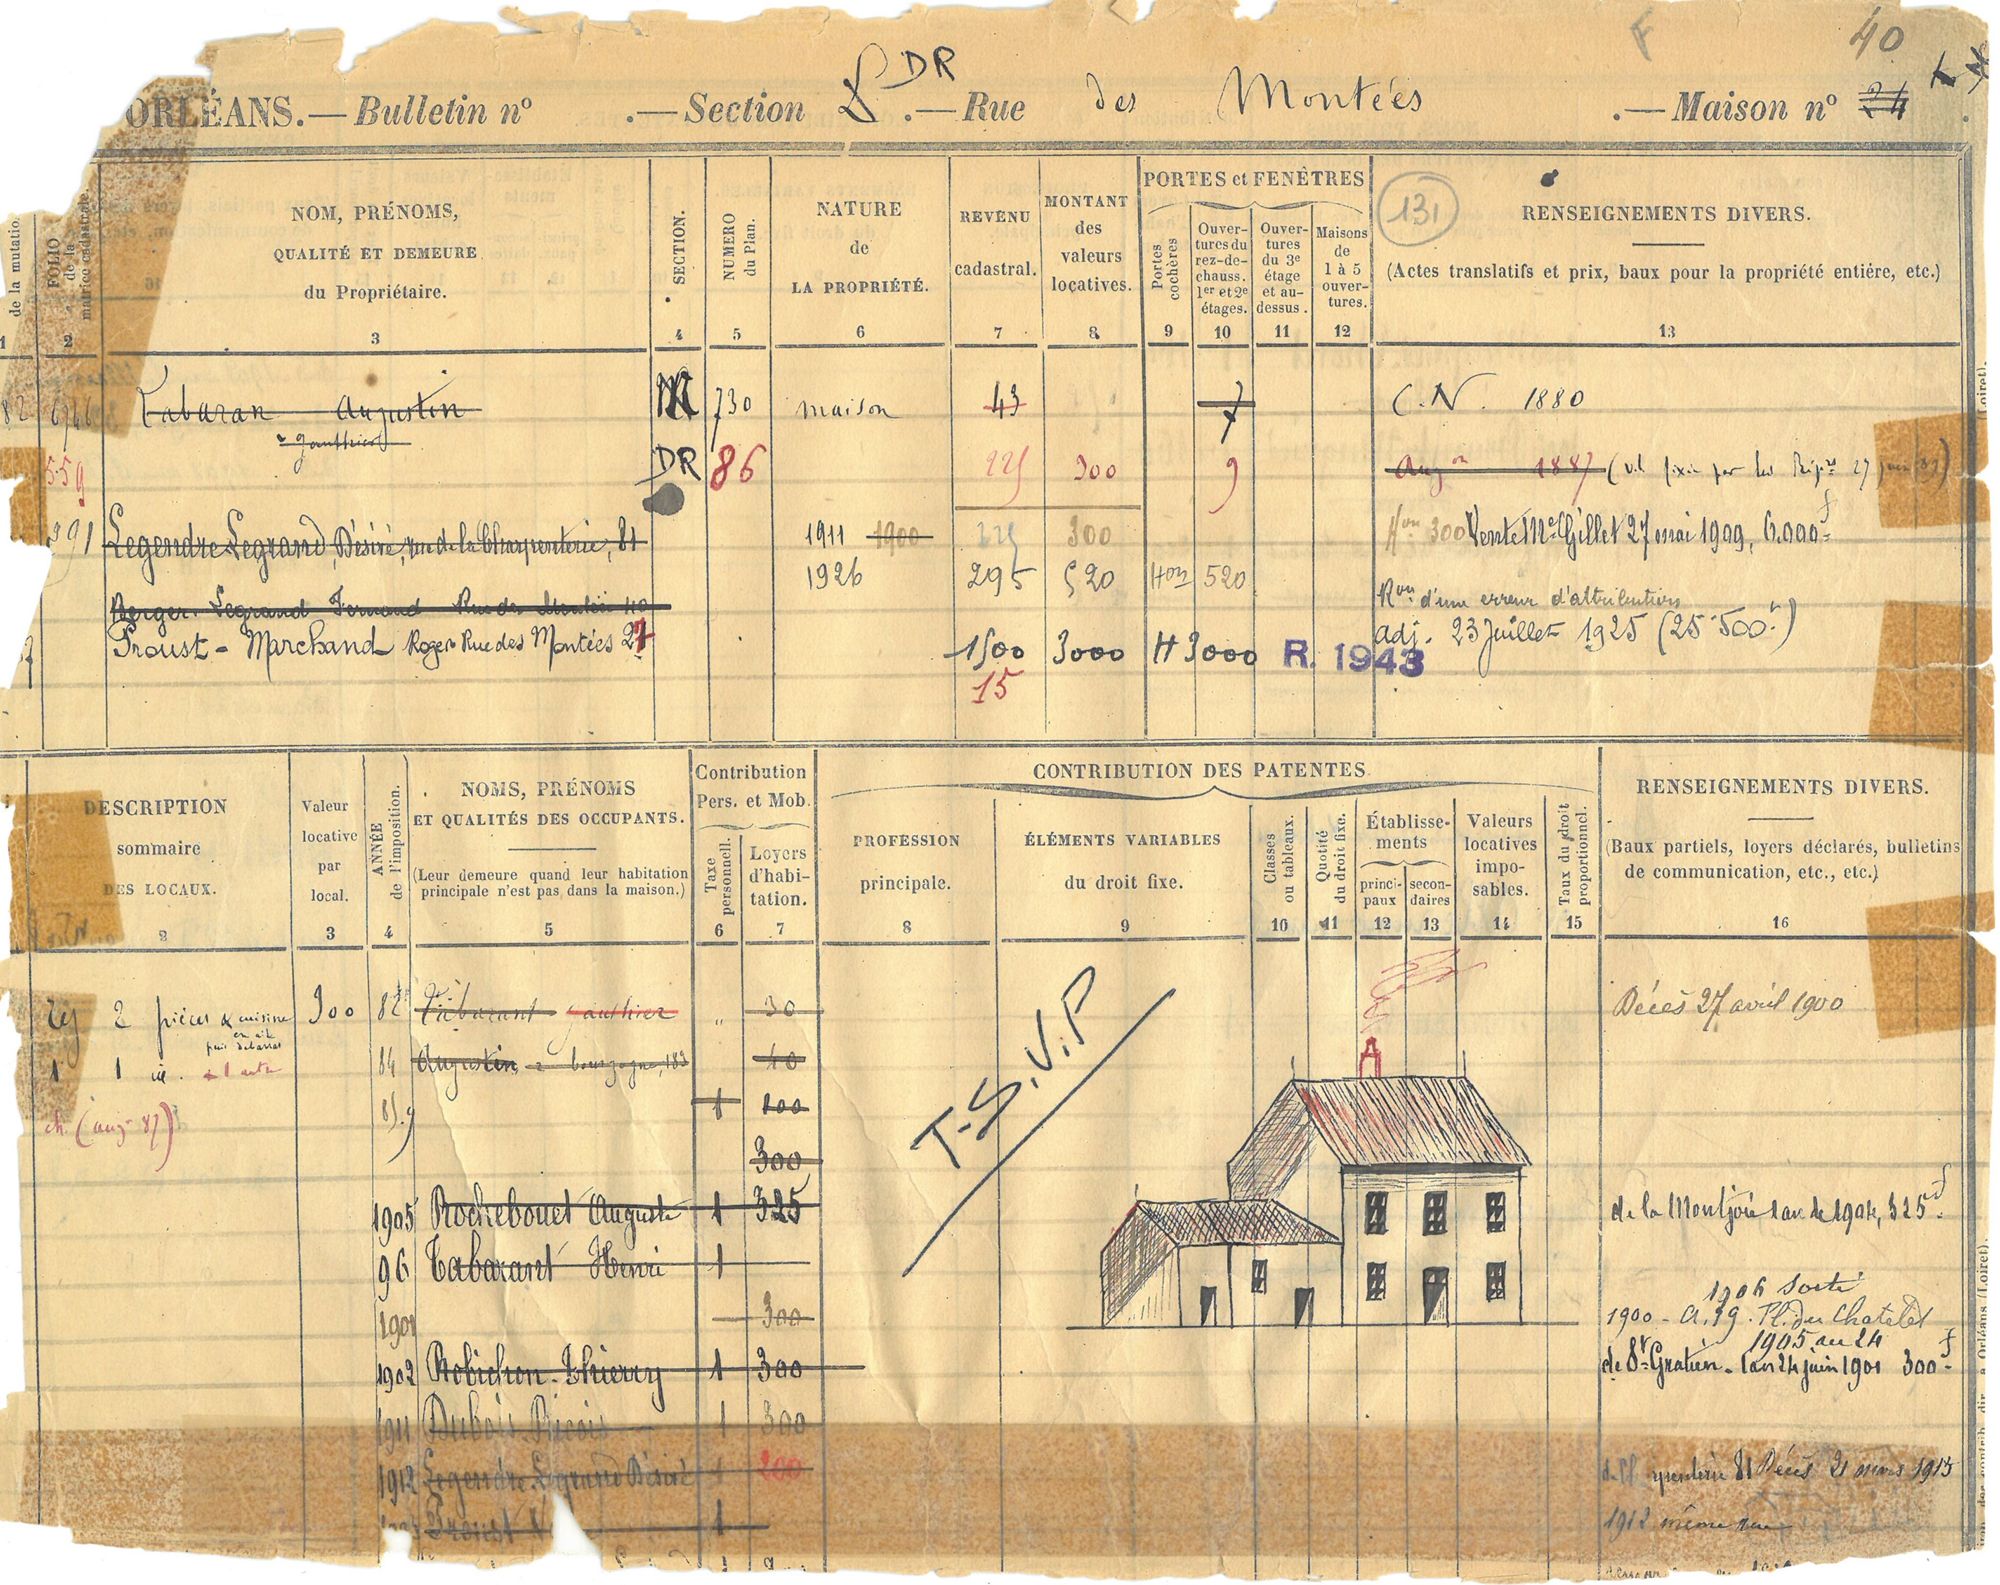 40
ORLÉANS. — Bulletin nº . — Section DR . — Rue des Montées . — Maison nº 24
de la mutation
FOLIO de la matrice cadastrale.
NOM, PRÉNOMS,
QUALITÉ ET DEMEURE
du Propriétaire.
SECTION.
NUMERO du Plan.
NATURE
de
LA PROPRIÉTÉ.
REVENU
cadastral.
MONTANT
des
valeurs
locatives.
PORTES et FENÊTRES
Portes cochères
Ouver-
tures du
rez-de-
chauss.
1er et 2e
étages.
Ouver-
tures
du 3e
étage
et au-
dessus.
Maisons
de
1 à 5
ouver-
tures.
131
RENSEIGNEMENTS DIVERS.
(Actes translatifs et prix, baux pour la propriété entière, etc.)
1 2 3 4 5 6 7 8 9 10 11 12 13
82 Tabaran Augustin 730 maison 43 7 C.N. 1880
559 DR 86 225 300 9 Augon 1887
391 Legendre Legrand, Désiré, rue de la Charpenterie, 81 1911 1900 225 300 300 Vente Me Gillet 27 mai 1909, 6.000f
1926 295 520 Hon 520
Berger-Legrand Fernand Rue des Montées 40 Ron d'une erreur d'attribution
Proust-Marchand Roger Rue des Montées 27 1500 3000 H 3000 R. 1943 adj. 23 Juillet 1925 (25.500f)
15
DESCRIPTION
sommaire
DES LOCAUX.
Valeur
locative
par
local.
ANNÉE de l'imposition.
NOMS, PRÉNOMS
ET QUALITÉS DES OCCUPANTS.
(Leur demeure quand leur habitation
principale n'est pas dans la maison.)
Contribution
Pers. et Mob.
Taxe personnell.
Loyers
d'habi-
tation.
CONTRIBUTION DES PATENTES
PROFESSION
principale.
ÉLÉMENTS VARIABLES
du droit fixe.
Classes ou tableaux.
Quotité du droit fixe.
Établisse-
ments
princi-
paux
secon-
daires
Valeurs
locatives
impo-
sables.
Taux du droit proportionnel.
RENSEIGNEMENTS DIVERS.
(Baux partiels, loyers déclarés, bulletins
de communication, etc., etc.)
2 3 4 5 6 7 8 9 10 11 12 13 14 15 16
rej 2 pièces & cuisine 300 82 Tabarant Gauthier " 30 Décès 27 avril 1900
1 1 84 Augustin, bourgogne, 183 40
1 100
300
T.S.V.P
1905 Rochebouet Auguste 1 325 de la Montjoie 1 an de 1904, 325f
96 Tabarant Henri 1
1906 sorti
1901 300 1900 - a. 39. Pl. du Chatelet
1905 au 24
1902 Robichon-Thierry 1 300 de St Gratien - 1 an 24 juin 1901 300f
1911 Dubois 1 300
1912 Legendre Legrand Désiré 1 200 81 Décès 21 mars 1915
Proust 1 1912 même rue